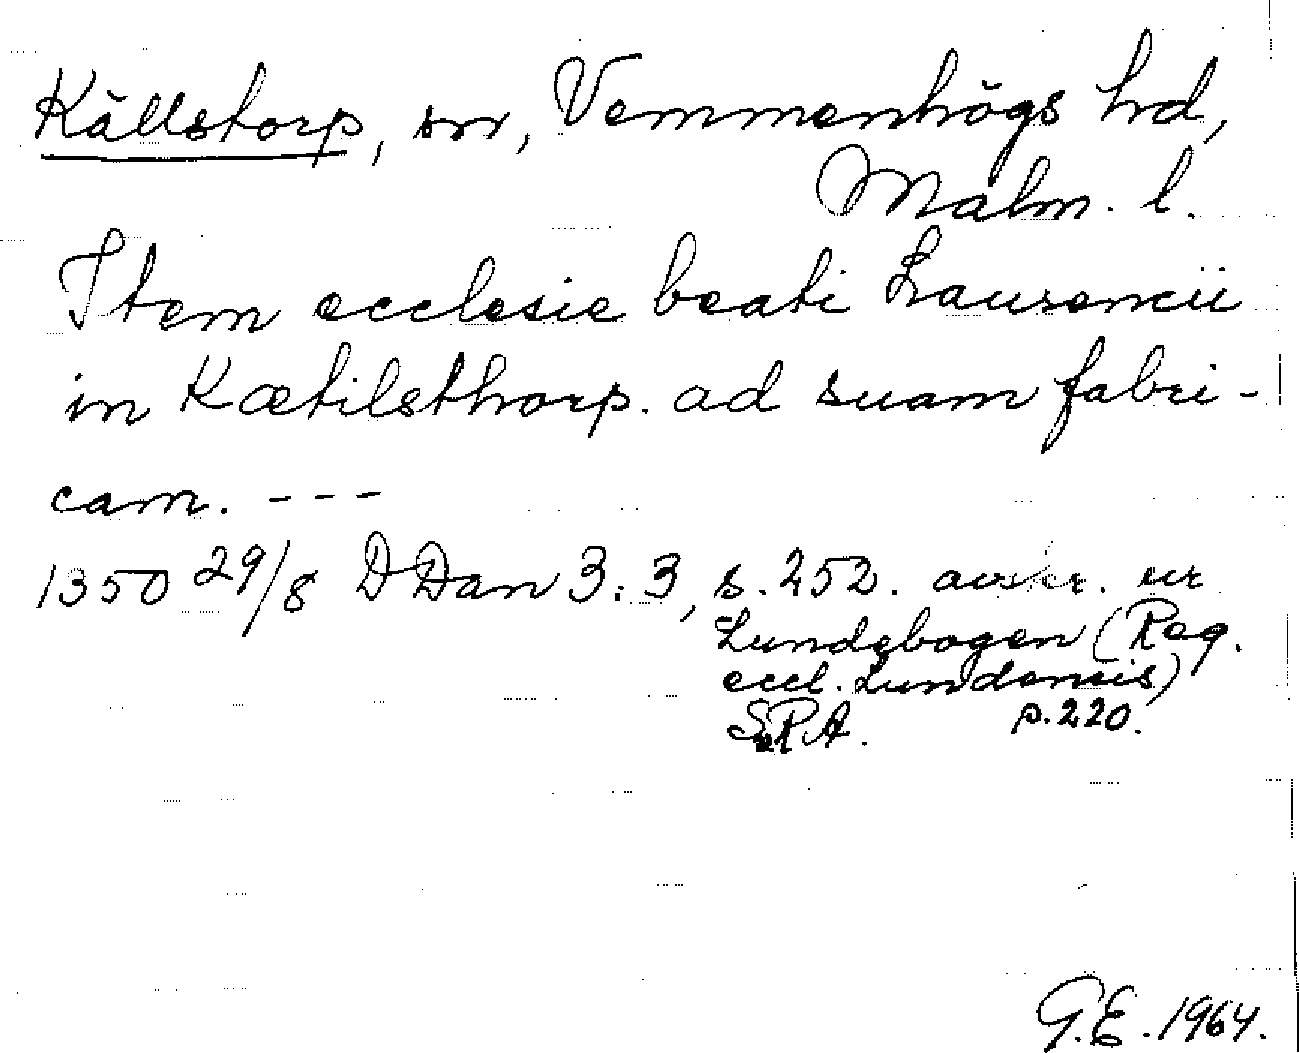 Källstorp, sn, Vemmenhögs hd,
Malm. l.
Item ecclesie beati Laurencii
in Kætilsthorp. ad suam fabri-
cam. ---
1350 29/8 DDan 3:3, s. 252. avskr. ur
Lundebogen (Reg.
eccl. Lundensis)
SRA. p. 220.
G.E. 1964.